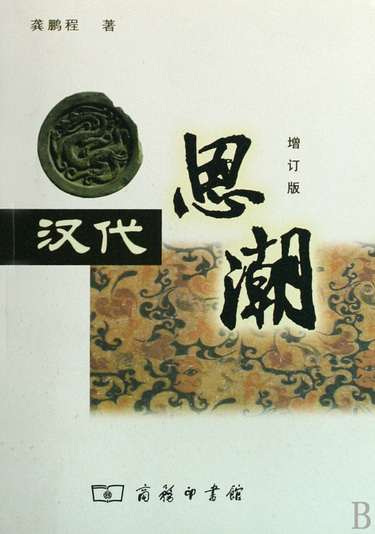 龚鹏程 著
汉代
思潮
增订版
商務印書館
B